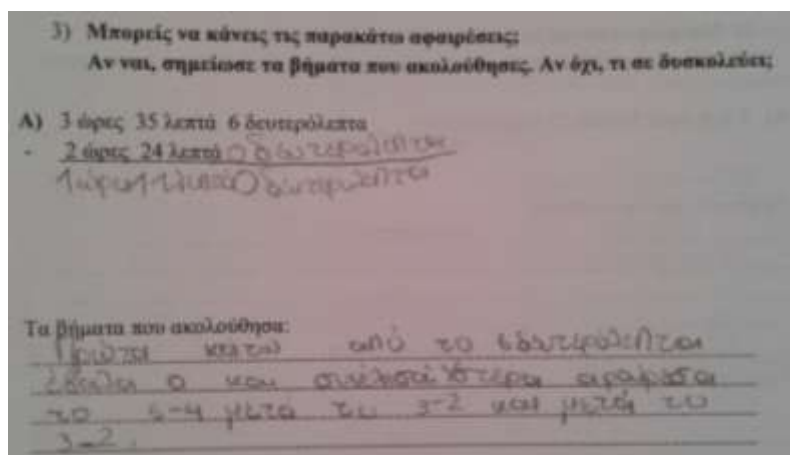 3) Μπορείς να κάνεις τις παρακάτω αφαιρέσεις;
Αν ναι, σημείωσε τα βήματα που ακολούθησες. Αν όχι, τι σε δυσκολεύει;
Α) 3 ώρες 35 λεπτά 6 δευτερόλεπτα
- 2 ώρες 24 λεπτά 0 δευτερόλεπτα
1 ώρα 11 λεπτά 0 δευτερόλεπτα
Τα βήματα που ακολούθησα:
Πρώτα κάτω από το 6 δευτερόλεπτα
έβαλα 0 και αφαίρεσα
το 5-4 μετά το 3-2 και μετά το
3-2.